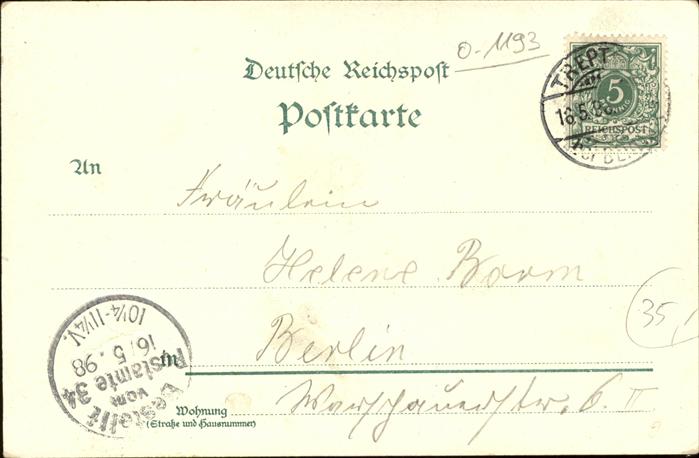 0-1193
Deutsche Reichspost
Postkarte
TREPT
16.5.98.
5
REICHSPOST
An
Fräulein
Helene Borm
35,
Berlin
in
Warschauerstr. 6. II
Wohnung
(Straße und Hausnummer)
Bestellt
vom
Postamte 34
16. 5. 98
10¼-11¼V.